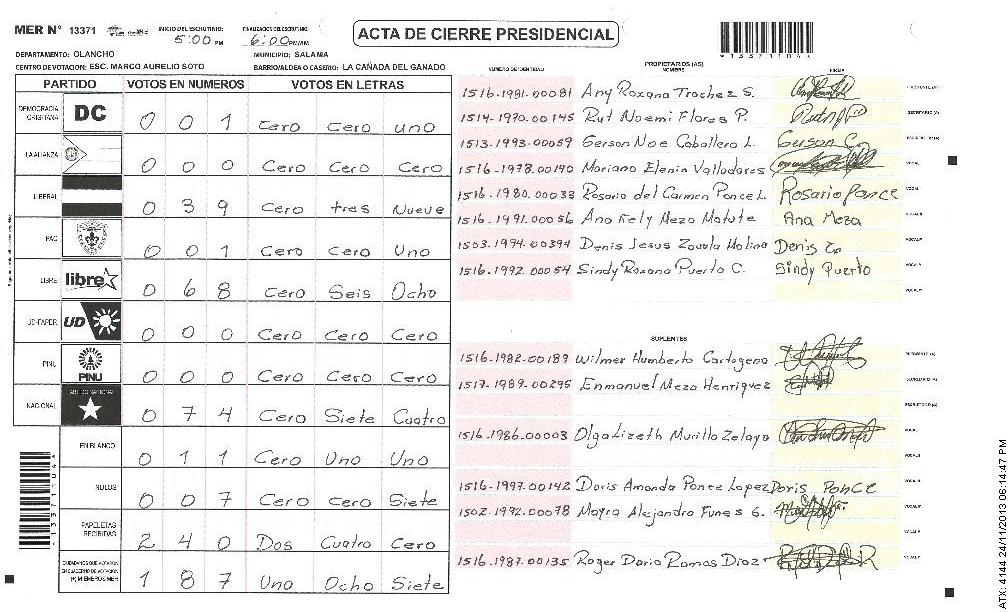 MER N° 13371 INICIO DEL ESCRUTINIO: 5:00 PM FINALIZACION DEL ESCRUTINIO: 6:00 PM/AM ACTA DE CIERRE PRESIDENCIAL *13371104*
DEPARTAMENTO: OLANCHO MUNICIPIO: SALAMA
CENTRO DE VOTACION: ESC. MARCO AURELIO SOTO BARRIO/ALDEA O CASERIO: LA CAÑADA DEL GANADO
PARTIDO VOTOS EN NUMEROS VOTOS EN LETRAS
DEMOCRACIA CRISTIANA DC 0 0 1 Cero Cero uno
LA ALIANZA 0 0 0 Cero Cero Cero
LIBERAL 0 3 9 Cero tres Nueve
PAC 0 0 1 Cero Cero Uno
LIBRE libre 0 6 8 Cero Seis Ocho
UD-FAPER UD 0 0 0 Cero Cero Cero
PINU PINU 0 0 0 Cero Cero Cero
NACIONAL 0 7 4 Cero Siete Cuatro
EN BLANCO 0 1 1 Cero Uno Uno
NULOS 0 0 7 Cero cero Siete
PAPELETAS RECIBIDAS 2 4 0 Dos Cuatro Cero
CIUDADANOS QUE VOTARON EN CUADERNO DE VOTACION (+) MIEMBROS MER 1 8 7 Uno Ocho Siete
*13371104*
PROPIETARIOS (AS)
NUMERO DE IDENTIDAD NOMBRE FIRMA
1516.1981.00081 Any Roxana Trochez S. PRESIDENTE (A)
1514-1970.00145 Rut Noemi Flores P. SECRETARIO (A)
1513.1993.00059 Gerson Noe Caballero L. Gerson C. ESCRUTADOR (A)
1516-1978.00190 Mariano Elenin Valladares VOCAL
1516.1980.00033 Rosario del Carmen Ponce L. Rosario Ponce
1516.1991.00056 Ana Kely Meza Matute Ana Meza
1503.1994.00394 Denis Jesus Zavala Molina Denis
1516.1992.00054 Sindy Roxana Puerto C. Sindy Puerto
SUPLENTES
1516-1982.00189 Wilmer Humberto Cartagena PRESIDENTE (A)
1517.1989.00295 Enmanuel Meza Henriquez SECRETARIO (A)
ESCRUTADOR (A)
1516.1986.00003 Olga Lizeth Murillo Zelaya VOCAL
1516-1997.00142 Doris Amanda Ponce Lopez Doris Ponce
1502.1992.00078 Mayra Alejandra Funes G.
1516.1987.00135 Roger Dario Ramos Diaz
ATX: 4144 24/11/2013 06:14:47 PM